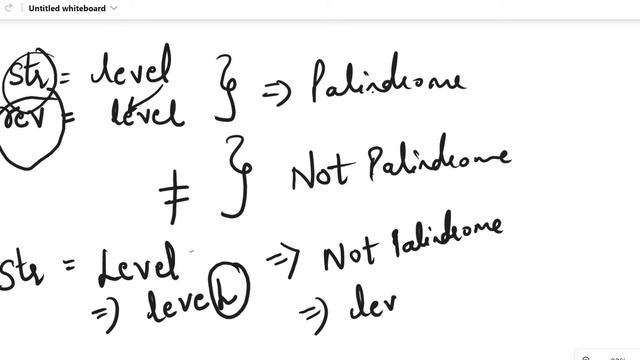 Untitled whiteboard
str = level } => Palindrome
rev = level
≠ } Not Palindrome
str = Level => Not Palindrome
=> leveL => lev